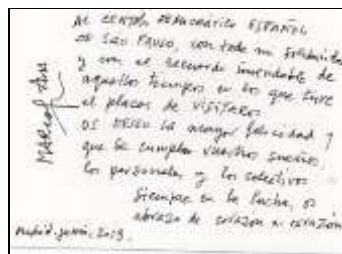 AL CENTRO DEMOCRÁTICO ESPAÑOL
DE SAO PAULO, con todo mi solidaridad
y con el recuerdo imborrable de
aquellos tiempos en los que tuve
el placer de VISITAROS
OS DESEO la mayor felicidad y
que se cumplan vuestros sueños,
los personales y los colectivos
Siempre en la lucha, os
abraza de corazón a corazón
MARCOS ANA
Madrid - junio, 2013.